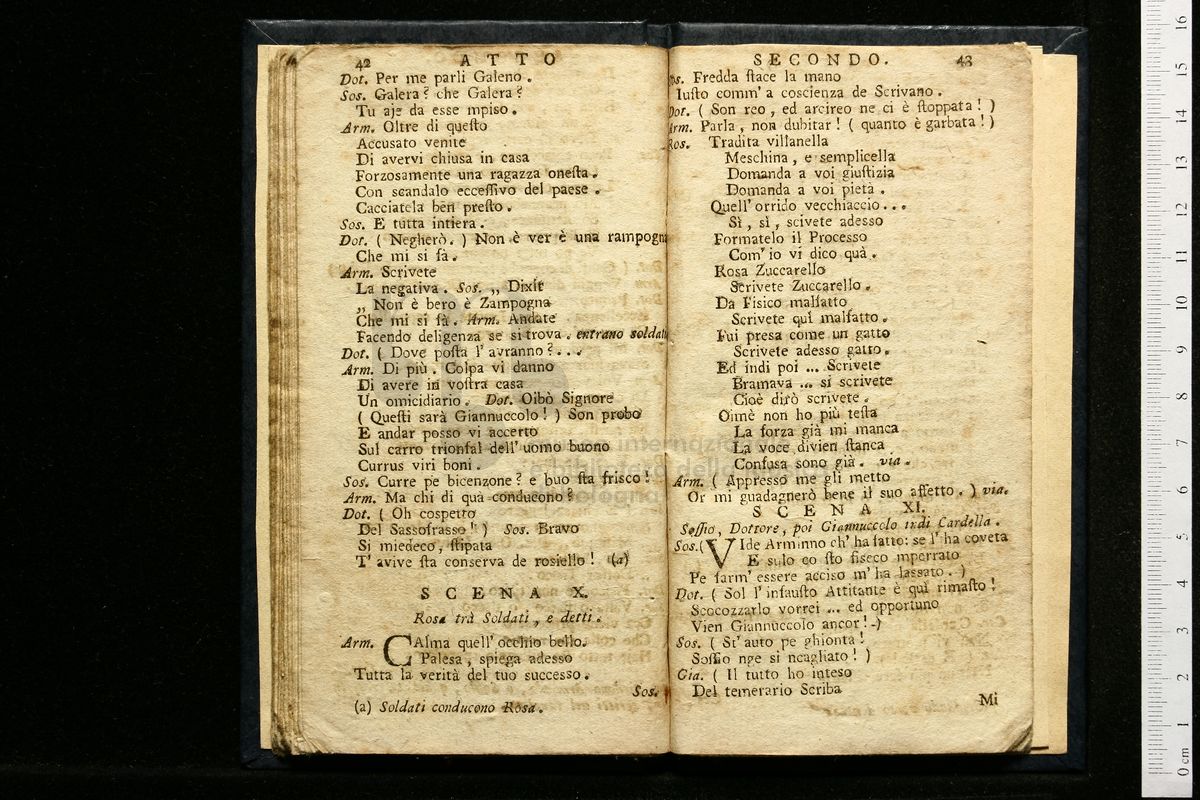 42 ATTO
Dot. Per me parli Galeno.
Sos. Galera? che Galera?
Tu aje da esse mpiso.
Arm. Oltre di questo
Accusato venite
Di avervi chiusa in casa
Forzosamente una ragazza onesta.
Con scandalo eccessivo del paese.
Cacciatela ben presto.
Sos. E tutta intiera.
Dot. ( Negherò. ) Non è ver è una rampogna
Che mi si fà.
Arm. Scrivete
La negativa. Sos. „ Dixit
„ Non è bero è Zampogna
Che mi si fà. Arm. Andate
Facendo deligenza se si trova. entrano soldati
Dot. ( Dove posta l' avranno?...
Arm. Di più. Colpa vi danno
Di avere in vostra casa
Un omicidiario. Dot. Oibò Signore
( Questi sarà Giannuccolo! ) Son probo
E andar posso vi accerto
Sul carro trionfal dell' uomo buono
Currus viri boni.
Sos. Curre pe bicenzone? e buo sta frisco!
Arm. Ma chi di qua conducono?
Dot. ( Oh cospetto
Del Sassofrasso!! ) Sos. Bravo
Si miedeco, stipata
T' avive sta conserva de rosiello! (a)
SCENA X.
Rosa trà Soldati, e detti.
Arm. CAlma quell' occhio bello.
Palesa, spiega adesso
Tutta la verità del tuo successo.
Sos.
(a) Soldati conducono Rosa.
SECONDO. 43
Sos. Fredda stace la mano
Iusto comm' a coscienza de Scrivano.
Dot. ( Son reo, ed arcireo ne ci è stoppata! )
Arm. Parla, non dubitar! ( quanto è garbata! )
Ros. Tradita villanella
Meschina, e semplicella
Domanda a voi giustizia
Domanda a voi pietà.
Quell' orrido vecchiaccio...
Sì, sì, scivete adesso
Formatelo il Processo
Com' io vi dico quà.
Rosa Zuccarello
Scrivete Zuccarello.
Da Fisico malfatto
Scrivete quì malfatto.
Fui presa come un gatto
Scrivete adesso gatto.
Ed indi poi ... Scrivete
Bramava ... si scrivete
Cioè dirò scrivete.
Oimè non ho più testa
La forza già mi manca
La voce divien stanca
Confusa sono già. via.
Arm. ( Appresso me gli metto
Or mi guadagnerò bene il suo affetto. ) via.
SCENA XI.
Sossio, Dottore, poi Giannuccolo indi Cardella.
Sos.( VIde Arminno ch' ha fatto: se l' ha coveta
E sulo co sto fiseco mperrato
Pe farm' essere acciso m' ha lassato. )
Dot. ( Sol l' infausto Attitante è quì rimasto!
Scocozzarlo vorrei ... ed opportuno
Vien Giannuccolo ancor! )
Sos. ( St' auto pe ghionta!
Sossio nge si ncagliato! )
Gia. ( Il tutto ho inteso
Del temerario Scriba
Mi